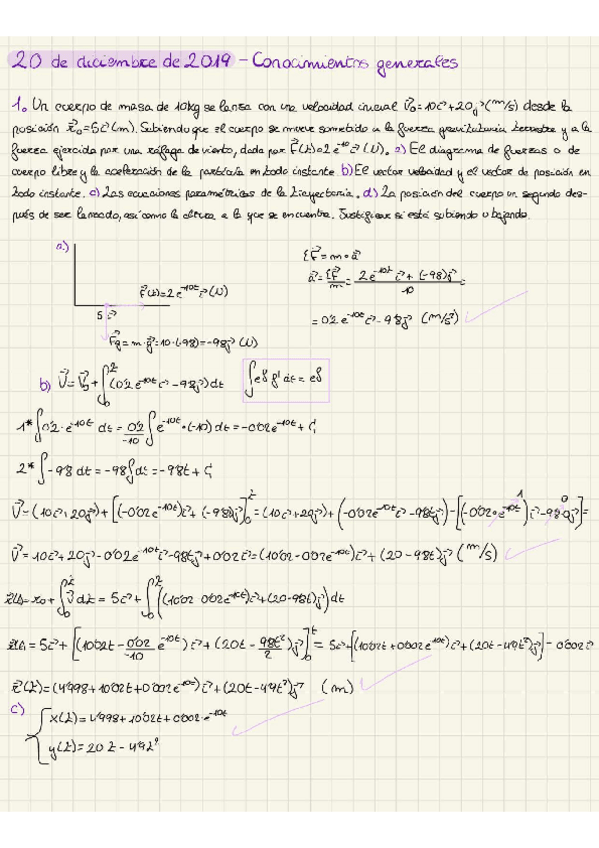 20 de diciembre de 2019 - Conocimientos generales
1. Un cuerpo de masa de 10kg se lanza con una velocidad inicial v⃗₀=10i⃗+20j⃗ (m/s) desde la
posición r⃗₀=5i⃗ (m). Sabiendo que el cuerpo se mueve sometido a la fuerza gravitatoria terrestre y a la
fuerza ejercida por una ráfaga de viento, dada por F⃗(t)=2e^-10t i⃗ (N). a) El diagrama de fuerzas o de
cuerpo libre y la aceleración de la partícula en todo instante b) El vector velocidad y el vector de posición en
todo instante. c) Las ecuaciones paramétricas de la trayectoria. d) La posición del cuerpo un segundo des-
pués de ser lanzado, así como la altura a la que se encuentra. Justifique si está subiendo o bajando.
a)
ΣF⃗ = m·a⃗
a⃗ = ΣF⃗/m = (2e^-10t i⃗ + (-98)j⃗)/10 =
F⃗(t)=2e^-10t i⃗ (N)
5 i⃗
= 0'2e^-10t i⃗ - 9'8j⃗ (m/s²)
F⃗g=m·g⃗=10·(-9'8)=-98j⃗ (N)
b) V⃗ = V⃗₀ + ∫₀ᵗ (0'2e^-10t i⃗ - 9'8j⃗) dt
∫e^f f' dt = e^f
1* ∫0'2·e^-10t dt = 0'2/-10 ∫e^-10t·(-10) dt = -0'02e^-10t + C
2* ∫-9'8 dt = -9'8∫dt = -9'8t + C
V⃗ = (10i⃗+20j⃗) + [(-0'02e^-10t)i⃗ + (-9'8t)j⃗]₀ᵗ = (10i⃗+20j⃗) + (-0'02e^-10t i⃗ - 9'8tj⃗) - [(-0'02·e^-10t) i⃗ - 9'8·0j⃗] =
1 0
V⃗ = 10i⃗+20j⃗-0'02e^-10t i⃗-9'8tj⃗+0'02i⃗ = (10'02-0'02e^-10t)i⃗ + (20-9'8t)j⃗ (m/s)
r⃗(t) = r₀ + ∫₀ᵗ v⃗ dt = 5i⃗ + ∫₀ᵗ ((10'02-0'02e^-10t)i⃗+(20-9'8t)j⃗) dt
r⃗(t) = 5i⃗ + [(10'02t - 0'02/-10 e^-10t) i⃗ + (20t - 9'8t²/2) j⃗]₀ᵗ = 5i⃗+[(10'02t+0'002e^-10t)i⃗+(20t-4'9t²)j⃗] - 0'002i⃗
r⃗(t) = (4'998+10'02t+0'002e^-10t)i⃗+(20t-4'9t²)j⃗ (m)
c)
x(t) = 4'998+10'02t+0'002·e^-10t
y(t) = 20t - 4'9t²